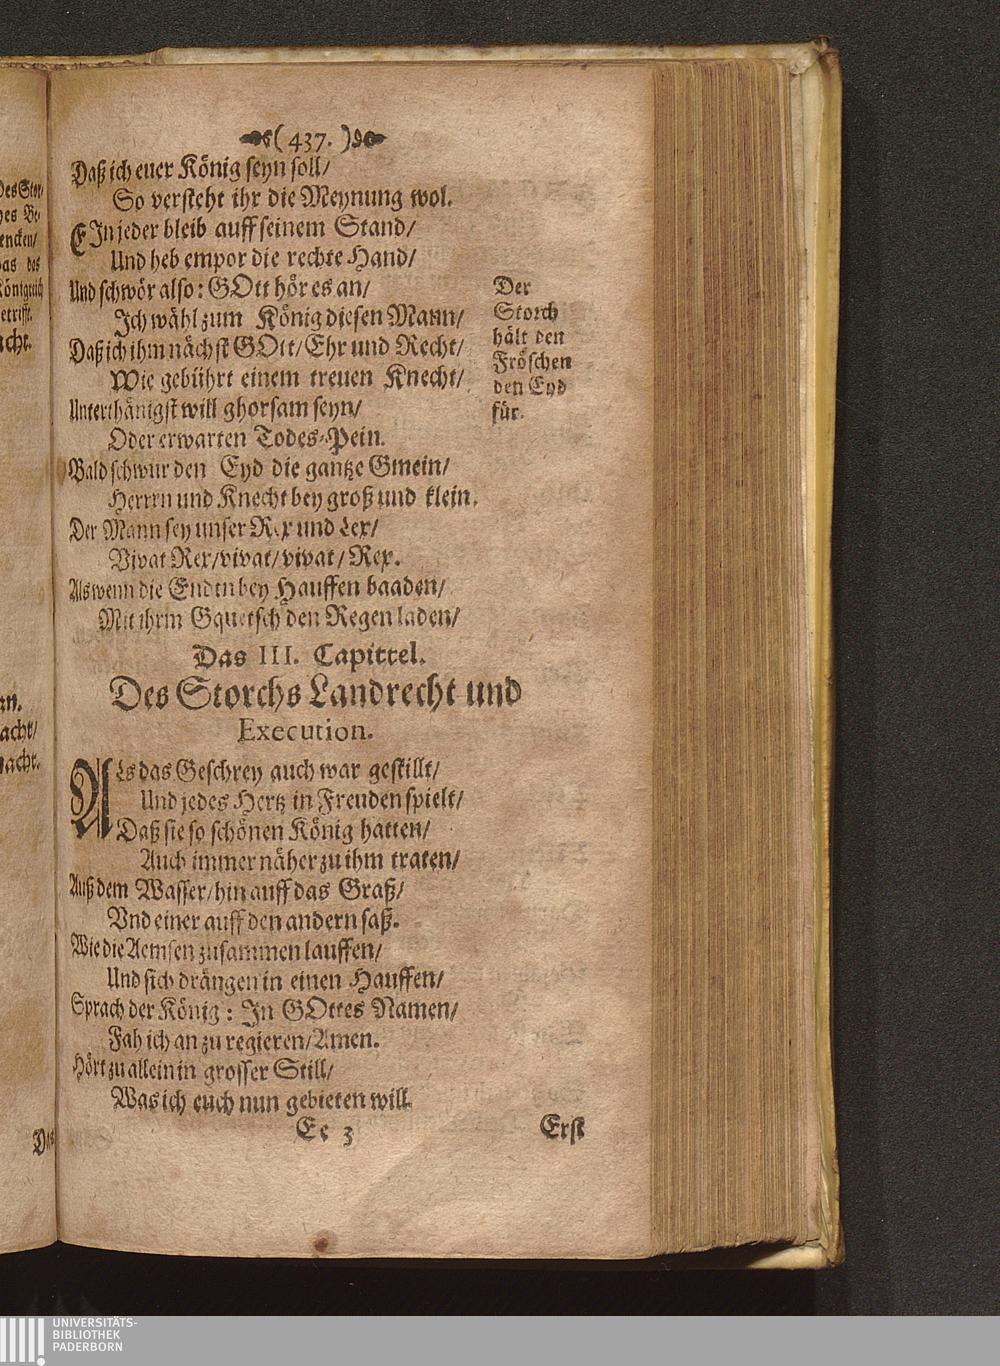 ( 437. )
Daß ich euer König seyn soll/
So versteht ihr die Meynung wol.
EIn jeder bleib auff seinem Stand/
Und heb empor die rechte Hand/
Und schwör also: GOtt hör es an/
Ich wähl zum König diesen Mann/
Daß ich ihm nächst GOtt/ Ehr und Recht/
Wie gebührt einem treuen Knecht/
Unterthänigst will ghorsam seyn/
Oder erwarten Todes-Pein.
Bald schwur den Eyd die gantze Gmein/
Herren und Knecht bey groß und klein.
Der Mann sey unser Rex und Lex/
Vivat Rex/ vivat/ vivat/ Rex.
Als wenn die Endtn bey Hauffen baaden/
Mit ihrm Gquetsch den Regen laden/
Der
Storch
hält den
Fröschen
den Eyd
für.
Das III. Capittel.
Des Storchs Landrecht und
Execution.
ALs das Geschrey auch war gestillt/
Und jedes Hertz in Freuden spielt/
Daß sie so schönen König hatten/
Auch immer näher zu ihm traten/
Auß dem Wasser/ hin auff das Graß/
Vnd einer auff den andern saß.
Wie die Aemsen zusammen lauffen/
Und sich drängen in einen Hauffen/
Sprach der König: In GOttes Namen/
Fah ich an zu regieren/ Amen.
Hört zu allein in grosser Still/
Was ich euch nun gebieten will.
Ee 3
Erst
UNIVERSITÄTS-
BIBLIOTHEK
PADERBORN